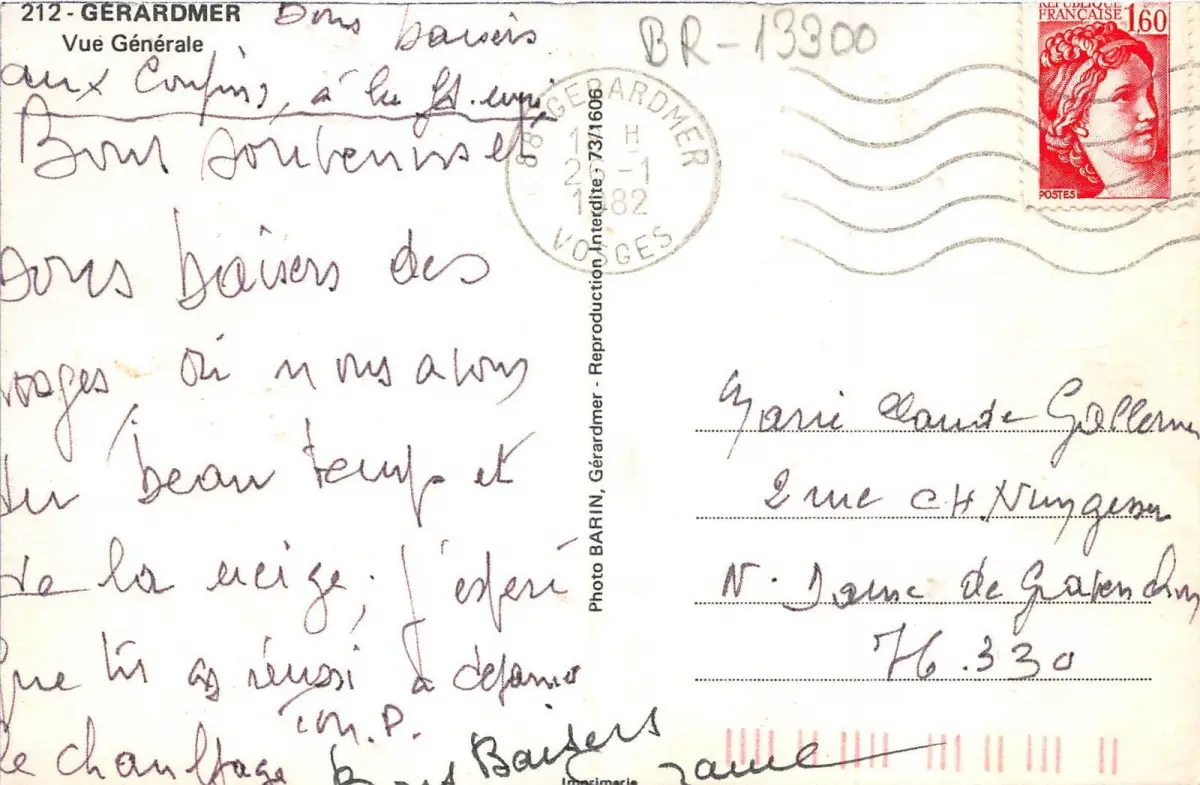 212 - GÉRARDMER
Vue Générale
Bons baisers
aux
à la
Bons souvenirs et
bons baisers des
vosges où nous avons
du beau temps et
de la neige, j'espère
que tu as réussi à
le chauffage
M.P.
Bons Baisers
BR-13300
88 GERARDMER
H
26-1
1982
VOSGES
RÉPUBLIQUE
FRANÇAISE 1,60
POSTES
Photo BARIN, Gérardmer - Reproduction Interdite - 73/1606
Marie Claude
2 rue CH. Nungesser
N. Dame de Gravenchon
76.330
Imprimerie